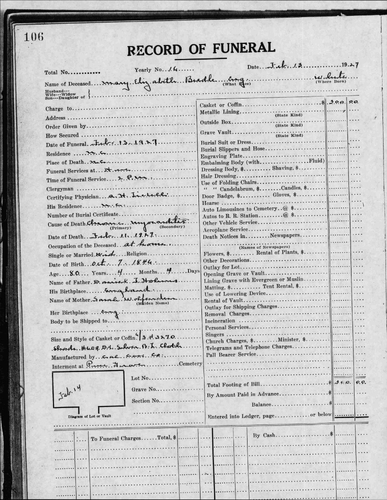 106
RECORD OF FUNERAL
Total No. Yearly No. 14 Date Feb. 13 1927
Name of Deceased Mary Elizabeth Eng White
Husband—
Wife—Widow
Son—Daughter of (What Race) (Where Born)
Charge to
Address
Order Given by
How Secured
Date of Funeral Feb. 13, 1927
Residence
Place of Death
Funeral Services at Home
Time of Funeral Service 2 P.M.
Clergyman
Certifying Physician
His Residence
Number of Burial Certificate
Cause of Death Chronic myocarditis
(Primary) (Secondary)
Date of Death Feb. 11, 1927
Occupation of the Deceased at home
Single or Married Wid. Religion
Date of Birth Oct. 7, 1846
Age 80 Years 4 Months 4 Days
Name of Father
His Birthplace England
Name of Mother Sarah
(Maiden Name)
Her Birthplace Eng
Body to be Shipped to
Size and Style of Casket or Coffin
Silver Cloth
Manufactured by
Interment at Cemetery
Lot No.
Grave No.
Section No.
Feb 14
Diagram of Lot or Vault
Casket or Coffin $ 300.00
Metallic Lining
(State Kind)
Outside Box
(State Kind)
Grave Vault
(State Kind)
Burial Suit or Dress
Burial Slippers and Hose
Engraving Plate
Embalming Body (with Fluid)
Dressing Body, $ Shaving, $
Hair Dressing
Use of Folding Chairs
" " Candelabrum, $ Candles, $
Door Badge, $ Gloves, $
Hearse
Auto Limousines to Cemetery @ $
Autos to R. R. Station @ $
Other Vehicle Service
Aeroplane Service
Death Notices in Newspapers
(Names of Newspapers)
Flowers, $ Rental of Plants, $
Other Decorations
Outlay for Lot
Opening Grave or Vault
Lining Grave with Evergreen or Muslin
Matting, $ Tent Rental, $
Use of Lowering Device
Rental of Vault
Outlay for Shipping Charges
Removal Charges
Incineration
Personal Services
Singers
Church Charges, $ Minister, $
Telegrams and Telephone Charges
Pall Bearer Service
Total Footing of Bill $ 300.00
By Amount Paid in Advance
Balance
Entered into Ledger, page or below
To Funeral Charges Total, $ By Cash $